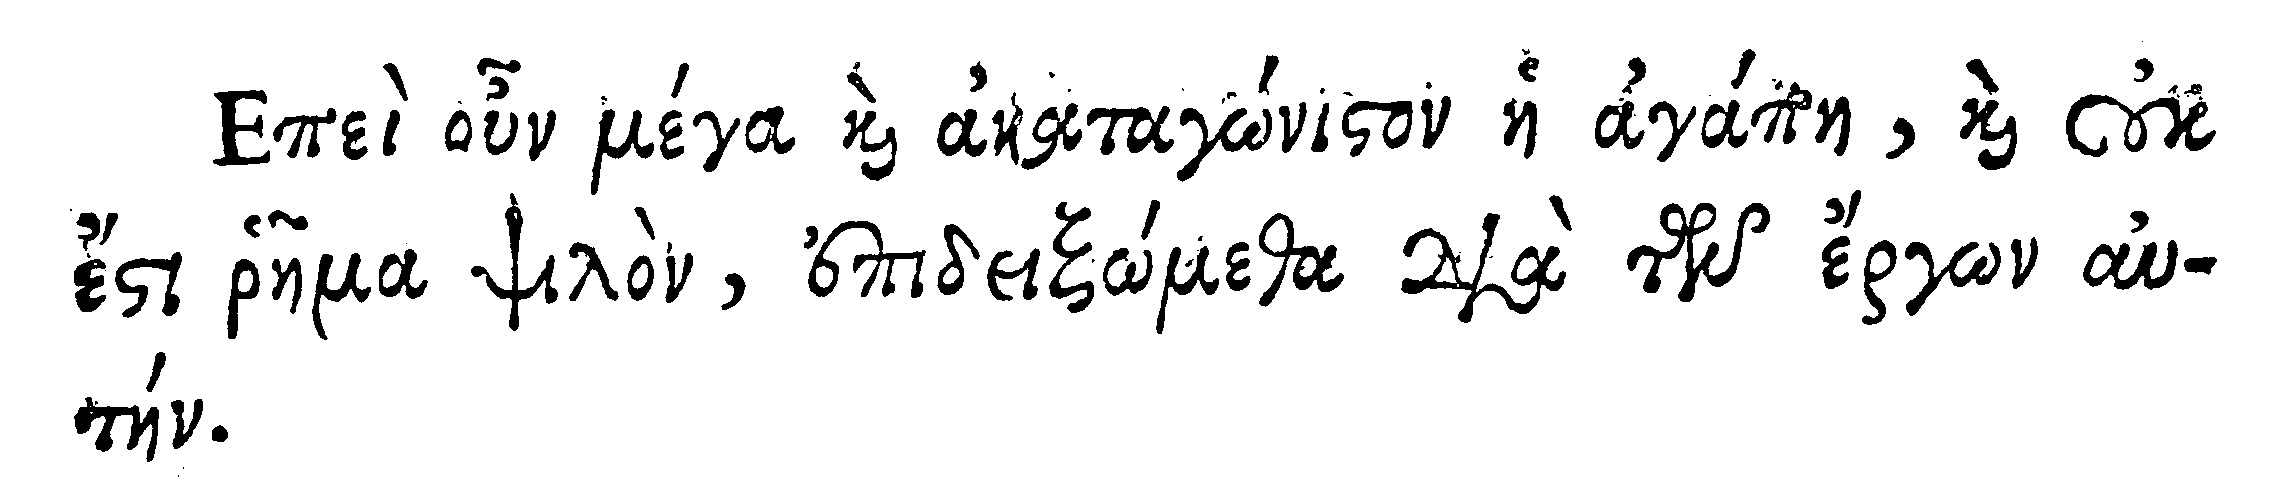 Ἐπεὶ οὖν μέγα ϗ̀ ἀκαταγώνιϛον ἡ ἀγάπη, ϗ̀ οὐκ
ἔϛι ῥῆμα ψιλὸν, ἐπιδειξώμεθα διὰ τῶν ἔργων αὐ-
τήν.